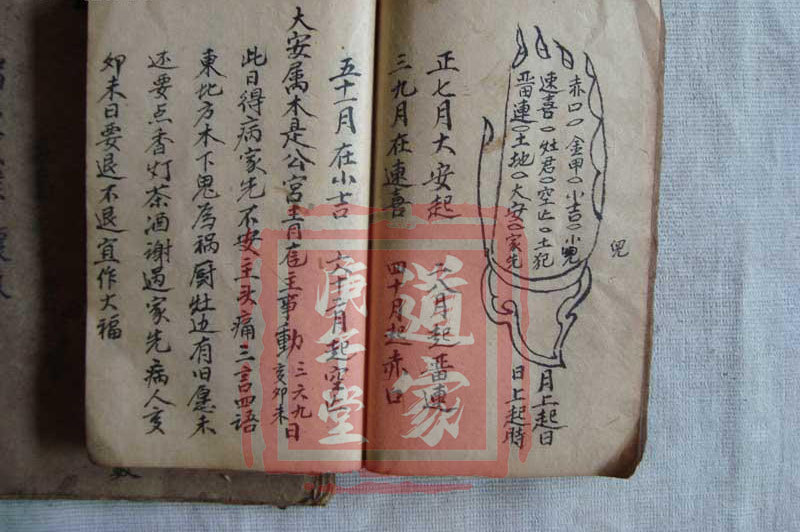 赤口 金甲 小吉 小兒
速喜 灶君 空亡 土犯
畨連 土地 大安 家先
兒
月上起日
日上起時
正七月大安起 二八月起畨連
三九月在連喜 四十月起赤口
五十一月在小吉 六十二月起空亡
大安属木是公宮青 主事動 三六九日 亥卯未
此日得病家先不安主头痛三言四语
東北方木下鬼為祸厨灶边有旧愿未
还要点香灯茶酒謝过家先病人亥
卯未日要退不退宜作大福
道家
庚子堂
數